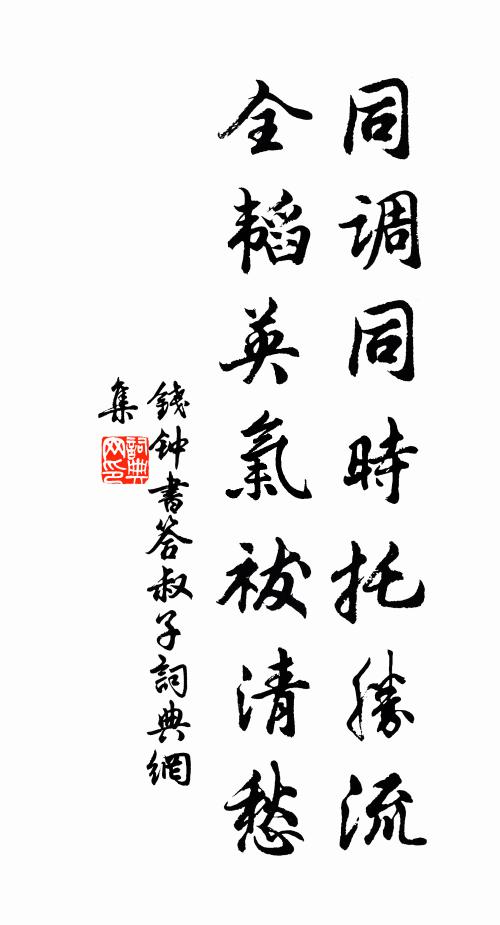 同调同時托勝流
全韬英氣祓清愁
錢钟書答叔子詞典網
集
詞典
网印